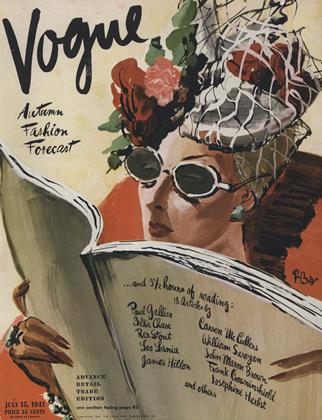 Vogue
Autumn
Fashion
Forecast
...and 3½ hours of reading:
18 Articles by
Paul Gallico
Ilka Chase
Rex Stout
Leo Lania
James Hilton
Carson McCullers
William Saroyan
John Mason Brown
Frank Crowninshield
Josephine Herbst
and others
RBW
ADVANCE
RETAIL
TRADE
EDITION
see section facing page 82
JULY 15, 1941
PRICE 35 CENTS